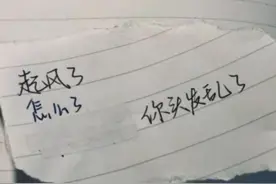 起风了
怎么了
你头发乱了